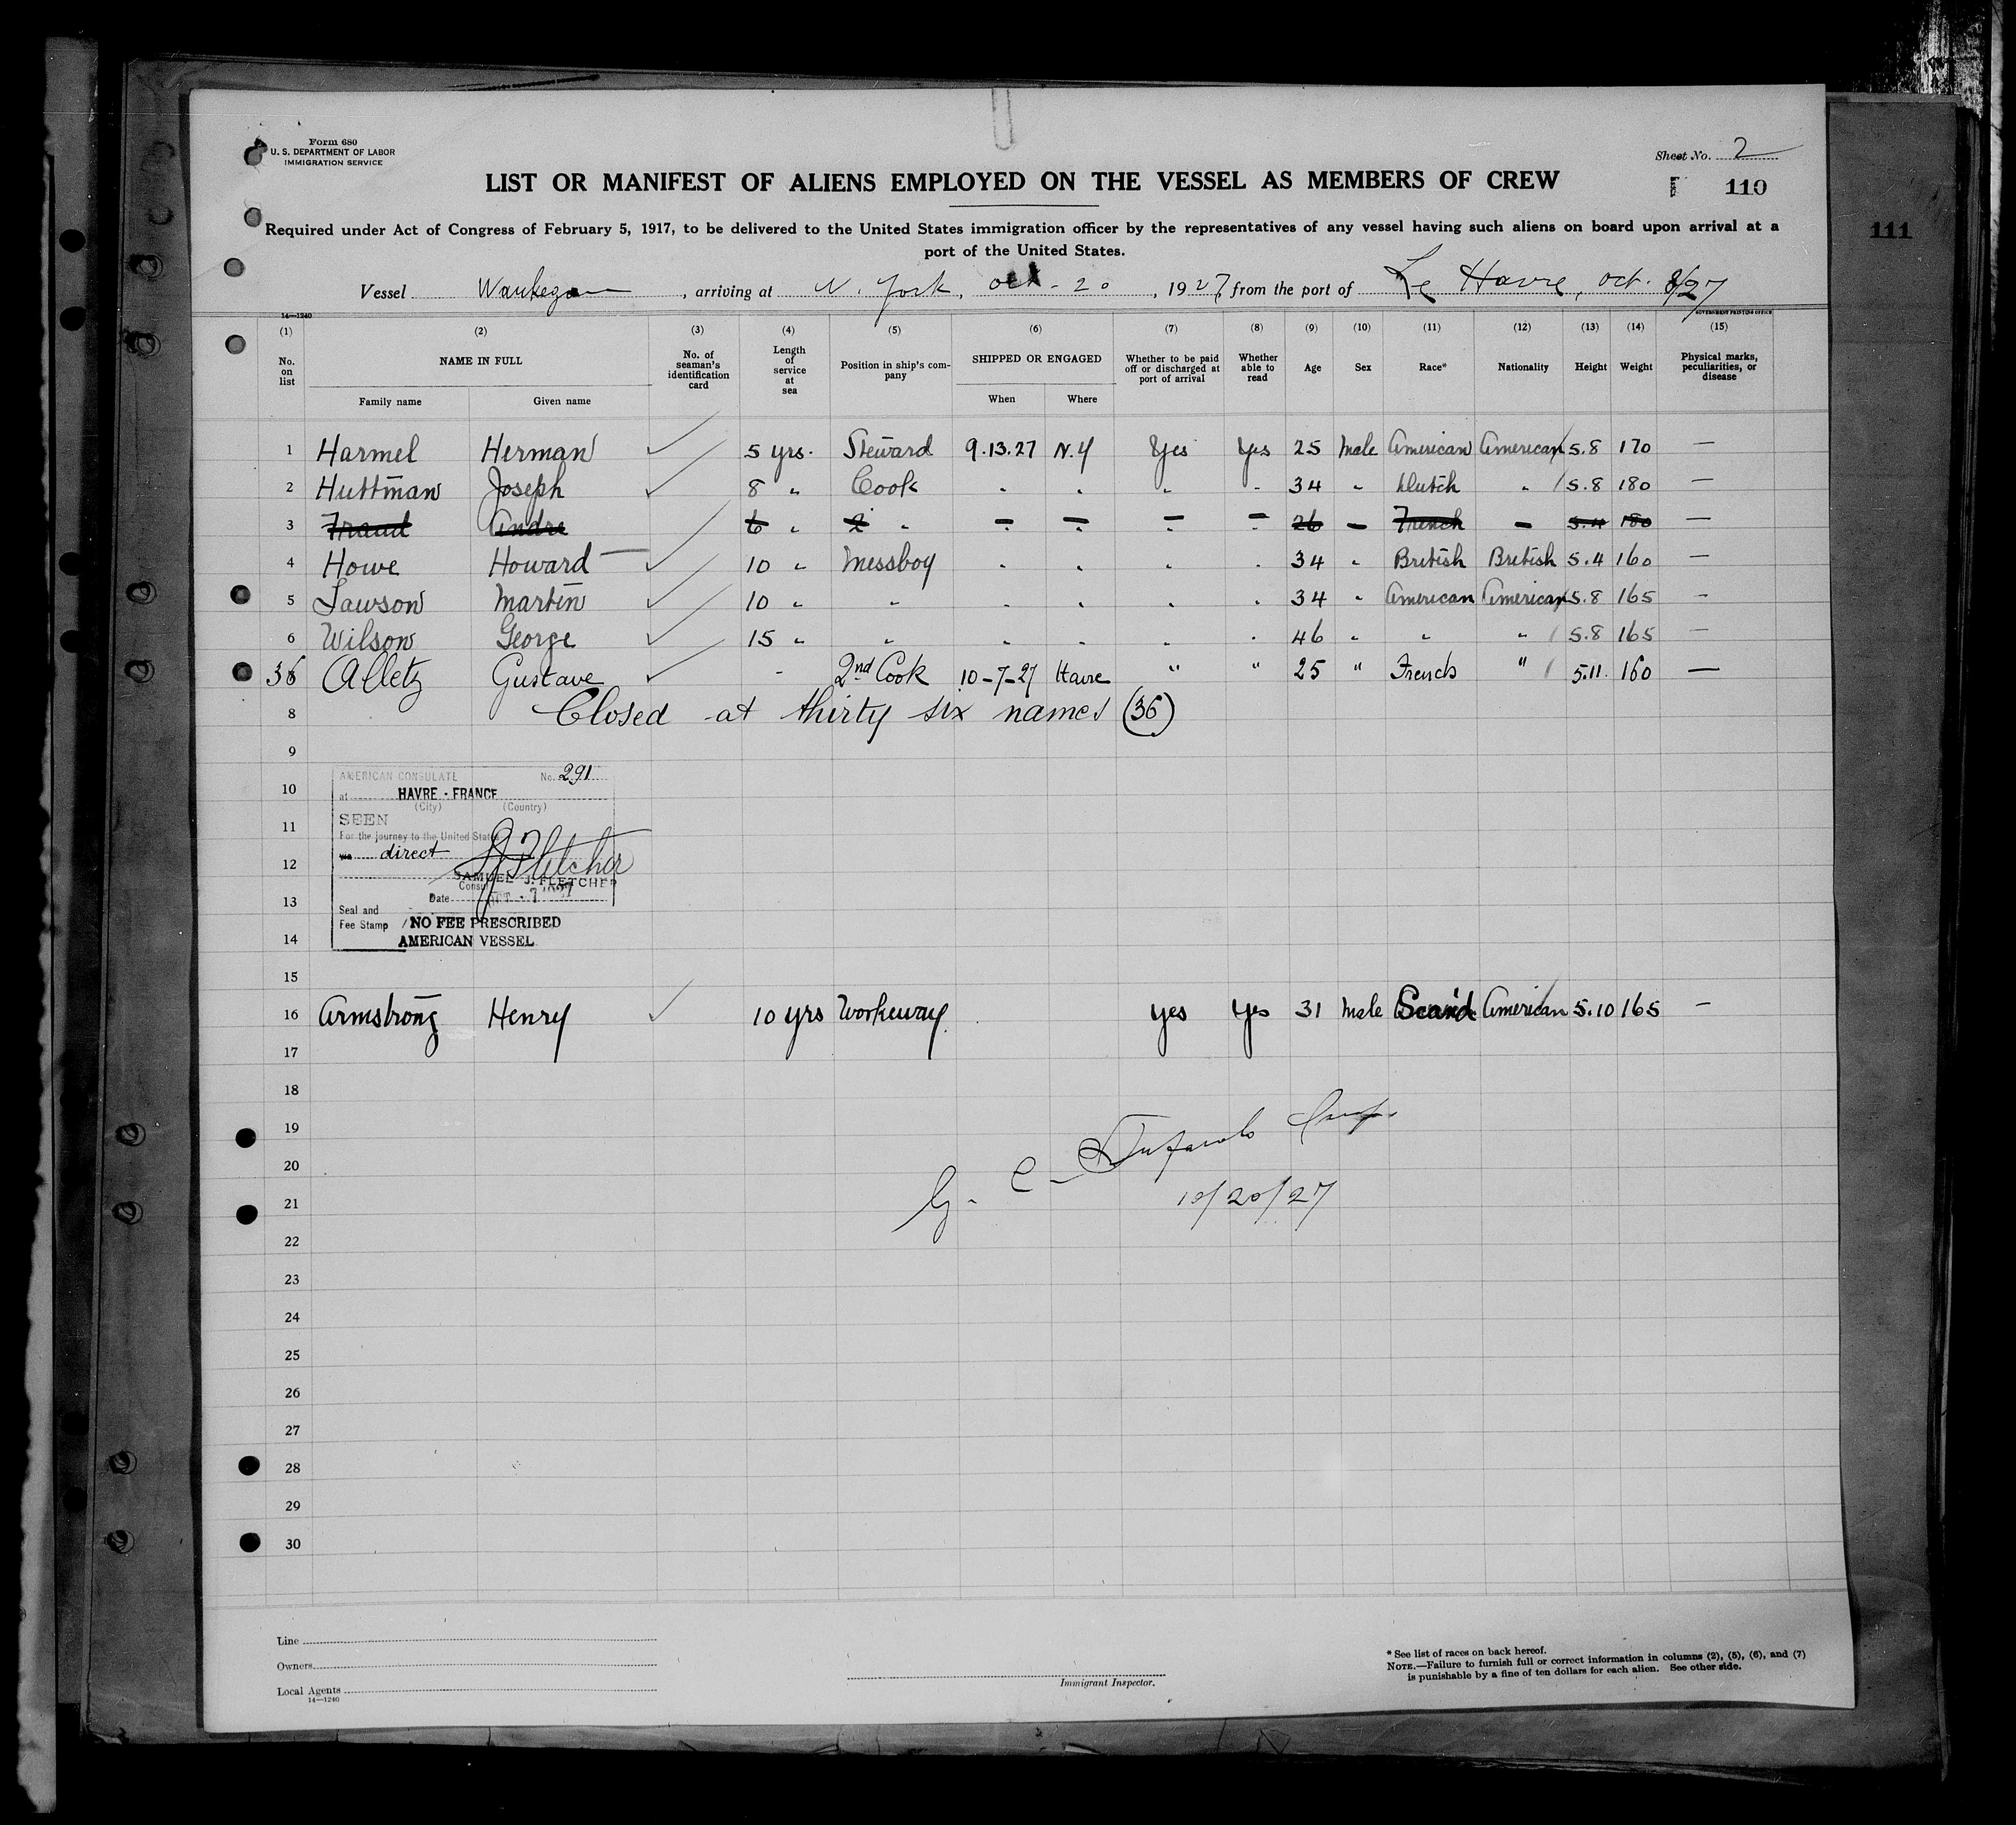 Form 680
U. S. DEPARTMENT OF LABOR
IMMIGRATION SERVICE
Sheet No. 2
110
111
LIST OR MANIFEST OF ALIENS EMPLOYED ON THE VESSEL AS MEMBERS OF CREW
Required under Act of Congress of February 5, 1917, to be delivered to the United States immigration officer by the representatives of any vessel having such aliens on board upon arrival at a
port of the United States.
Vessel Waukegan, arriving at N. York, Oct. 20, 1927, from the port of Le Havre, Oct. 8/27
14—1240 GOVERNMENT PRINTING OFFICE
(1) (2) (3) (4) (5) (6) (7) (8) (9) (10) (11) (12) (13) (14) (15)
No. on list NAME IN FULL No. of seaman's identification card Length of service at sea Position in ship's company SHIPPED OR ENGAGED Whether to be paid off or discharged at port of arrival Whether able to read Age Sex Race* Nationality Height Weight Physical marks, peculiarities, or disease
Family name Given name When Where
1 Harmel Herman ✓ 5 yrs. Steward 9.13.27 N.Y Yes Yes 25 Male American American 5.8 170 —
2 Huttman Joseph ✓ 8 " Cook " " " " 34 " Dutch " 5.8 180 —
3 Fraud Andre 6 " 2 " " " " " 26 — French — 5.4 180 —
4 Howe Howard ✓ 10 " Messboy " " " " 34 " British British 5.4 160 —
5 Lawson Martin ✓ 10 " " " " " " 34 " American American 5.8 165 —
6 Wilson George ✓ 15 " " " " " " 46 " " " 5.8 165 —
36 Alletz Gustave ✓ - 2nd Cook 10-7-27 Havre " " 25 " French " 5.11 160 —
8 Closed at thirty six names (36)
9
10
11
12
13
14
15
AMERICAN CONSULATE No. 291
at HAVRE - FRANCE
(City) (Country)
SEEN
For the journey to the United States
via direct
S J Fletcher
SAMUEL J. FLETCHER
Consul
Date OCT - 7 1927
Seal and
Fee Stamp NO FEE PRESCRIBED
AMERICAN VESSEL
16 Armstrong Henry ✓ 10 yrs Workaway yes yes 31 Male Scand American 5.10 165 —
17
18
19
20
21
10/20/27
22
23
24
25
26
27
28
29
30
Line
Owners
Local Agents
14—1240
Immigrant Inspector.
* See list of races on back hereof.
NOTE.—Failure to furnish full or correct information in columns (2), (5), (6), and (7)
is punishable by a fine of ten dollars for each alien. See other side.